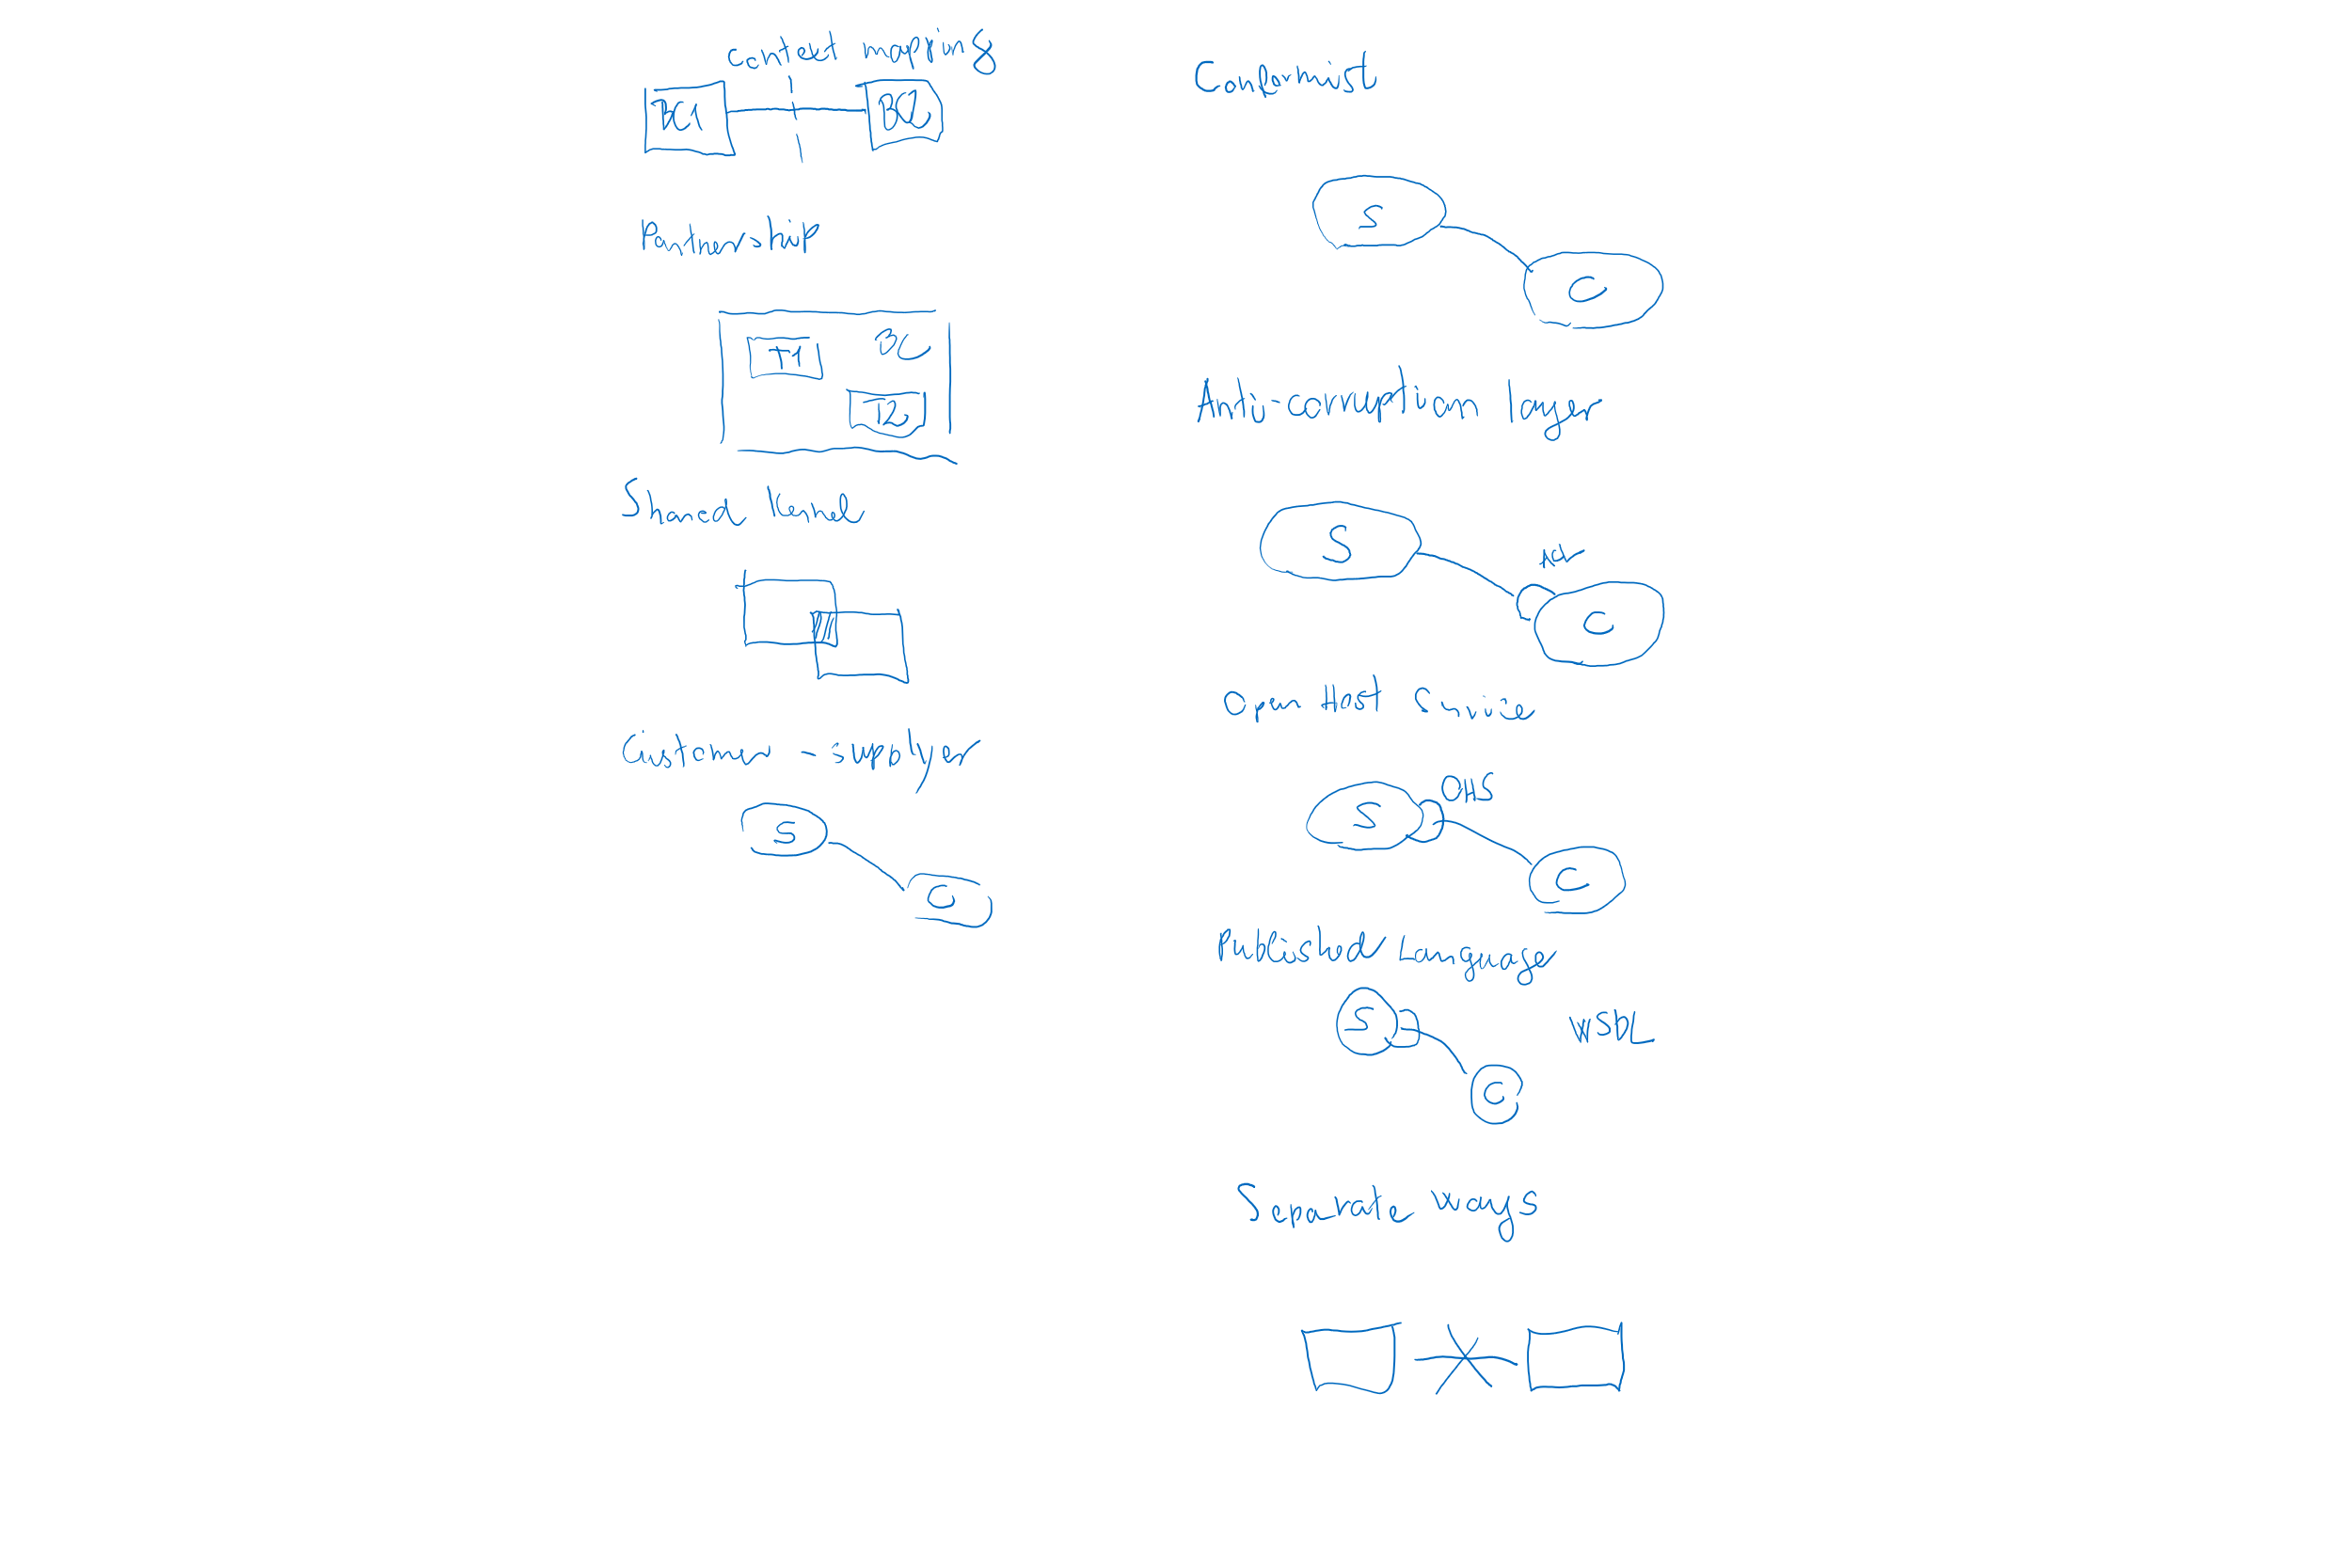 context mapping
BC1
BC2
Partnership
T1
BC
T2
Shared kernel
Customer - supplyer
S
C
Conformist
S
C
Anti-corruption layer
S
ACL
C
Open Host Service
OHS
S
C
Published Language
S
WSDL
C
Separate ways